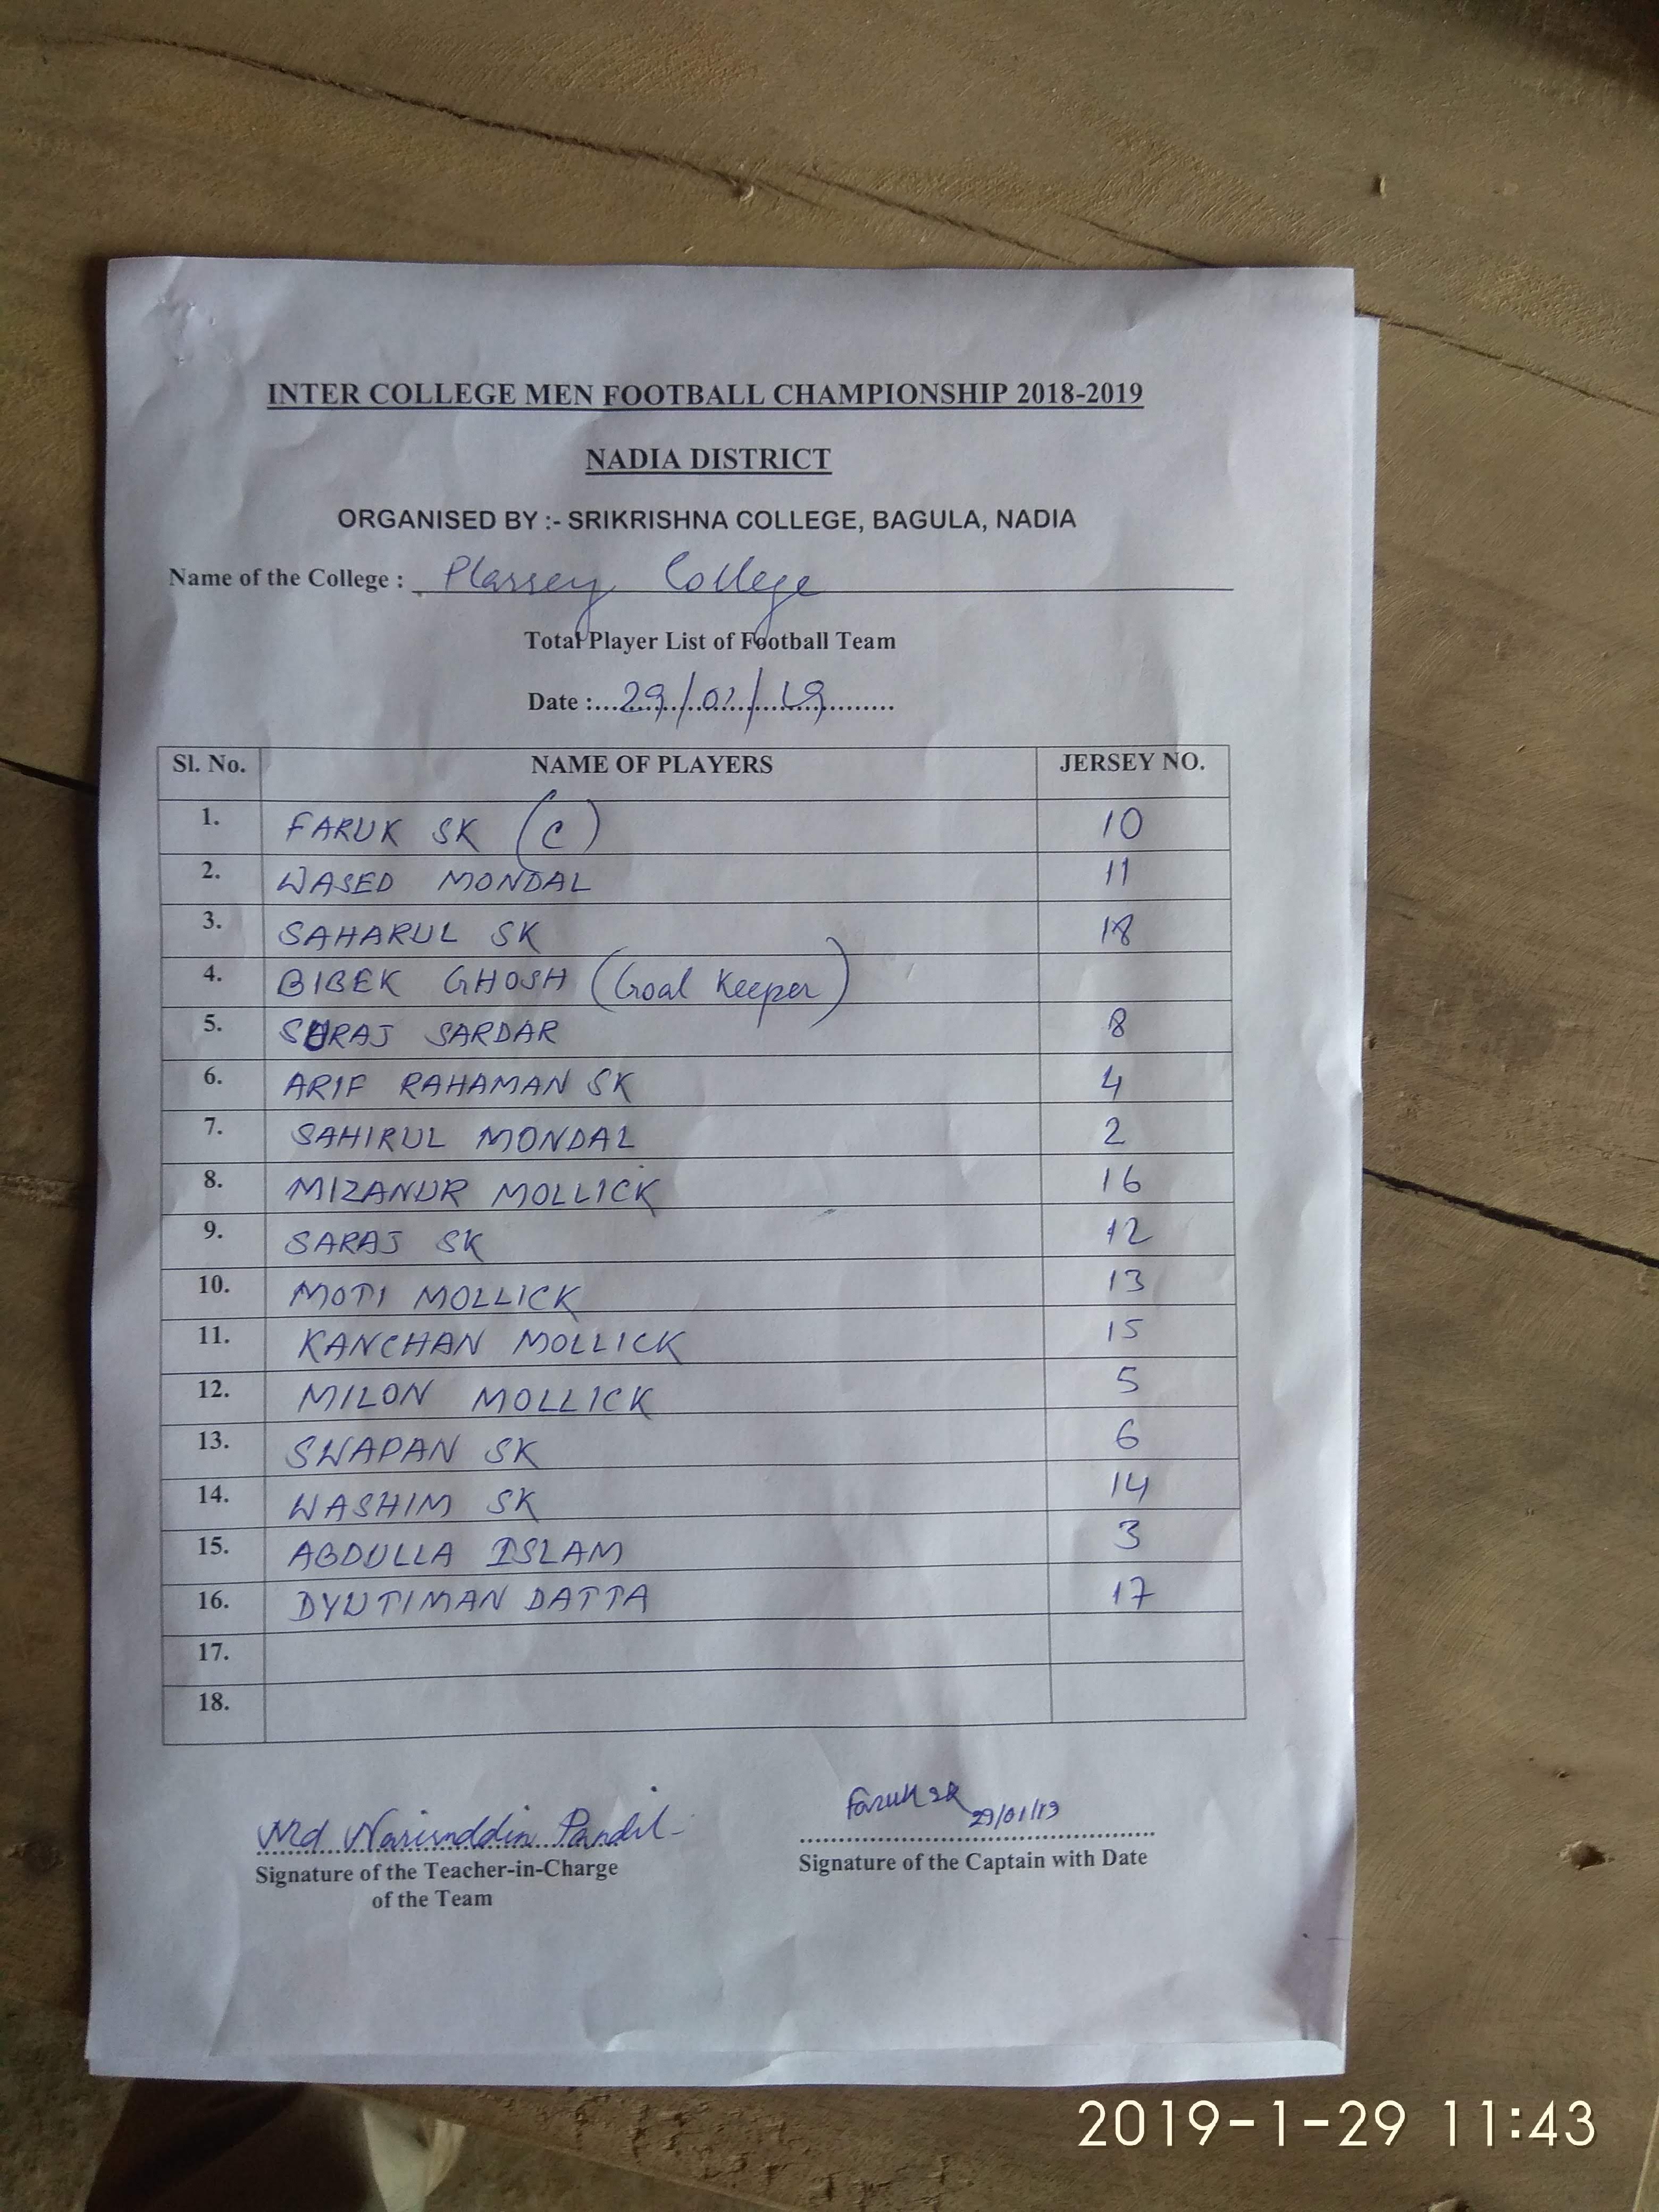 INTER COLLEGE MEN FOOTBALL CHAMPIONSHIP 2018-2019
NADIA DISTRICT
ORGANISED BY :- SRIKRISHNA COLLEGE, BAGULA, NADIA
Name of the College : Plassey College
Total Player List of Football Team
Date :...29/01/19...
Sl. No. NAME OF PLAYERS JERSEY NO.
1. FARUK SK (C) 10
2. WASED MONDAL 11
3. SAHARUL SK 18
4. BIBEK GHOSH (Goal Keeper)
5. SURAJ SARDAR 8
6. ARIF RAHAMAN SK 4
7. SAHIRUL MONDAL 2
8. MIZANUR MOLLICK 16
9. SARAJ SK 12
10. MOTI MOLLICK 13
11. KANCHAN MOLLICK 15
12. MILON MOLLICK 5
13. SWAPAN SK 6
14. WASHIM SK 14
15. ABDULLA ISLAM 3
16. DYUTIMAN DATTA 17
17.
18.
Md Pandit Faruk SK
29/01/19
Signature of the Teacher-in-Charge Signature of the Captain with Date
of the Team
2019-1-29 11:43